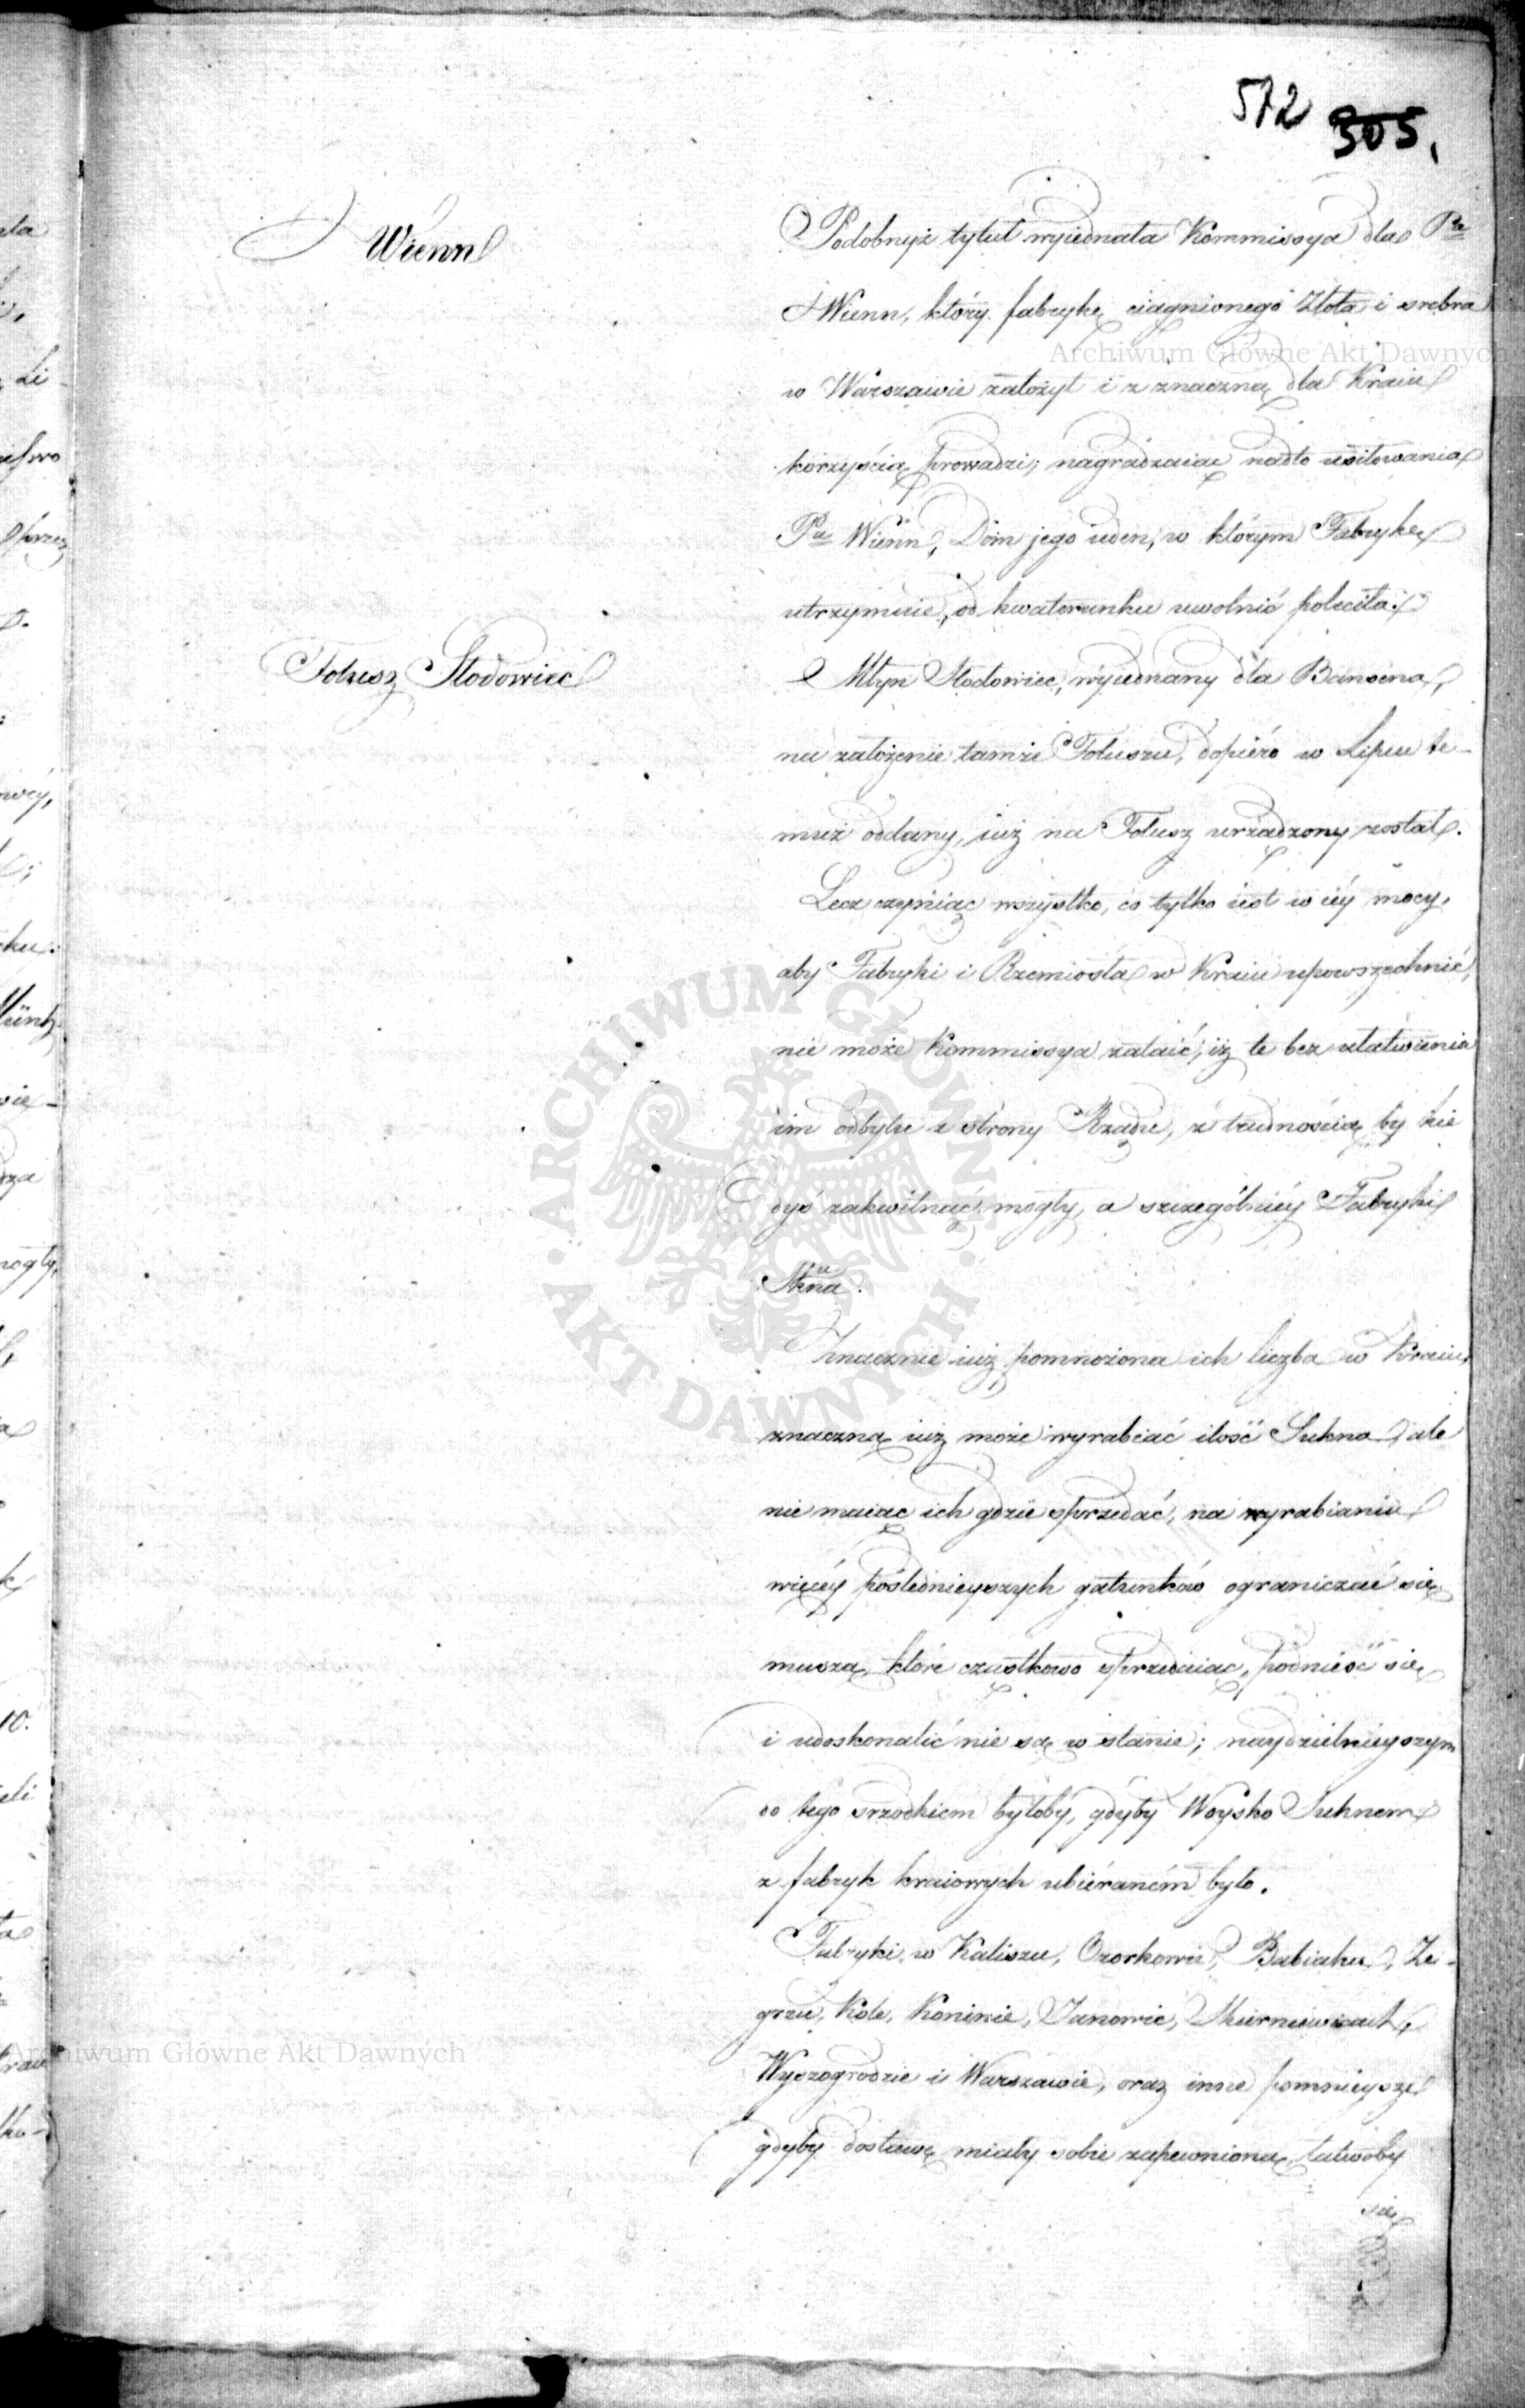 572 305.
Wienn
Podobnyż tytuł wyiednała Kommissya dla Pa
Wienn, który fabrykę ciągnionego Złota i srebra
w Warszawie założył i z znaczną dla Kraiu
korzyścią prowadzi; nagradzaiąc nadto usiłowania
Pa Wienn, Dom jego ieden, w którym Fabrykę
utrzymuie, od kwaterunku uwolnić poleciła.
Folusz Słodowiec
Młyn Słodowiec, wyiednany dla Bansena,
na założenie tamże Foluszu, dopiéro w Lipcu te-
muż oddany, iuż na Folusz urządzony został.
Lecz czyniąc wszystko, co tylko iest w iéy mocy,
aby Fabryki i Rzemiosła w Kraiu upowszechnić,
nie może Kommissya zataić, iż te bez ułatwienia
im odbytu z strony Rządu, z trudnością by kie
dyś zakwitnąć mogły, a szczególniéy Fabryki
Sukna.
Znacznie iuż pomnożona ich liczba w Kraiu,
znaczną iuż może wyrabiać ilość Sukna, ale
nie maiąc ich gdzie sprzedać, na wyrabianiu
więcéy pośledniejszych gatunków ograniczać się
muszą, które cząstkowo sprzedaiąc, podnieść się
i udoskonalić nie są w stanie; naydzielnieyszym
do tego srzodkiem byłoby, gdyby Woysko Suknem
z fabryk kraiowych ubiéraném było.
Fabryki w Kaliszu, Ozorkowie, Babiaku, Ze-
grzu, Kole, Koninie, Janowie, Skierniewicach,
Wyszogrodzie i Warszawie, oraz inne pomnieysze
gdyby dostawę miały sobie zapewnioną, łatwoby
się
Archiwum Główne Akt Dawnych
ARCHIWUM GŁÓWNE · AKT DAWNYCH ·
Archiwum Główne Akt Dawnych